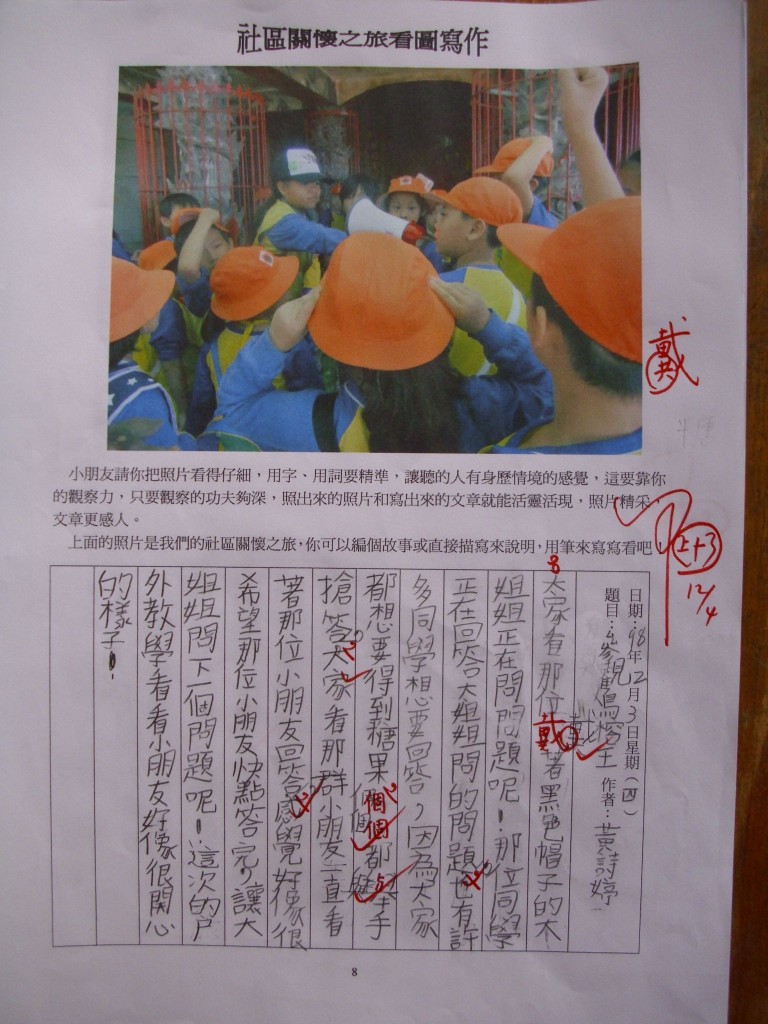 社區關懷之旅看圖寫作
小朋友請你把照片看得仔細，用字、用詞要精準，讓聽的人有身歷情境的感覺，這要靠你
的觀察力，只要觀察的功夫夠深，照出來的照片和寫出來的文章就能活靈活現，照片精采，
文章更感人。
上面的照片是我們的社區關懷之旅，你可以編個故事或直接描寫來說明，用筆來寫寫看吧！
日期：98年12月3日星期（四）
題目：參觀鳥松 作者：黃詩婷
大家看那位戴著黑色帽子的大
姐姐正在問問題呢！那位同學
正在回答大姐姐問的問題也有許
多同學想要回答，因為大家
都想要得到糖果個個都舉手
搶答。大家看那群小朋友一直看
著那位小朋友回答感覺好像很
希望那位小朋友快點答完，讓大
姐姐問下個問題呢！這次的戶
外教學看看小朋友好像很開心
的樣子！
戴
戴
個個
2+3
12/4
8
8